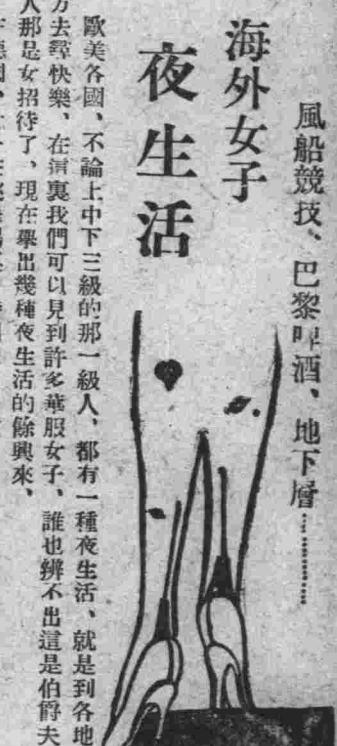 風船競技、巴黎啤酒、地下層…………
海外女子
夜生活
歐美各國、不論上中下三級的那一級人、都有一種夜生活、就是到各地
方去尋快樂、在這裏我們可以見到許多華服女子、誰也辨不出這是伯爵夫
人那是女招待了、現在舉出幾種夜生活的餘興來、